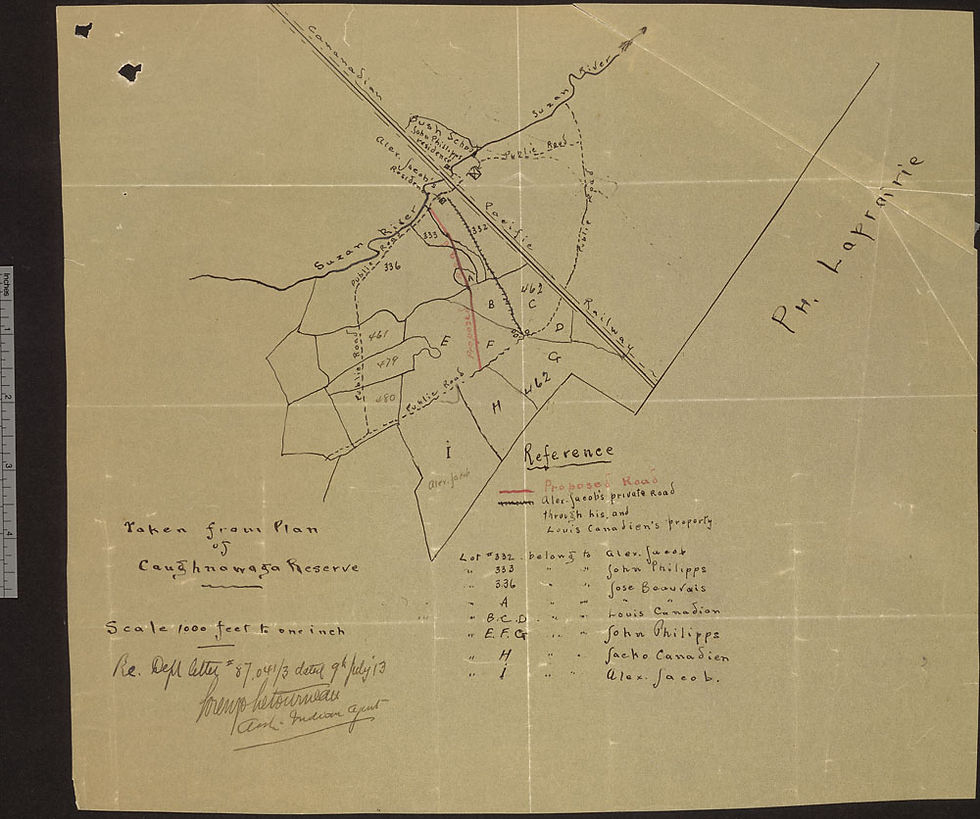 Cananadian
Pacific
Railway
Suzan River
Bush School
John Phillipps
residence
Alex. Jacob's
Residence
Public Road
Public Road
Suzan River
Public Road
333
332
336
A
B
462
C
D
Proposed
E
F
G
461
479
480
Public Road
Public Road
462
H
I
Alex. Jacob
PH. Laprairie
Reference
Proposed Road
Alex. Jacob's private Road
through his, and
Louis Canadien's property
Lot #332 belong to Alex. Jacob
" 333 " " John Philipps
" 336 " " Jose Beauvais
" A " " " "
" B.C.D. " " Louis Canadian
" E.F.G " " John Philipps
" H " " Jacko Canadien
" I " " Alex. Jacob.
Taken from Plan
of
Caughnawaga Reserve
Scale 1000 feet to one inch
Re. Dept letter # 87,041/3 dated 9th July '13
Lorenzo Letourneau
Indian Agent
Inches
1
2
3
4